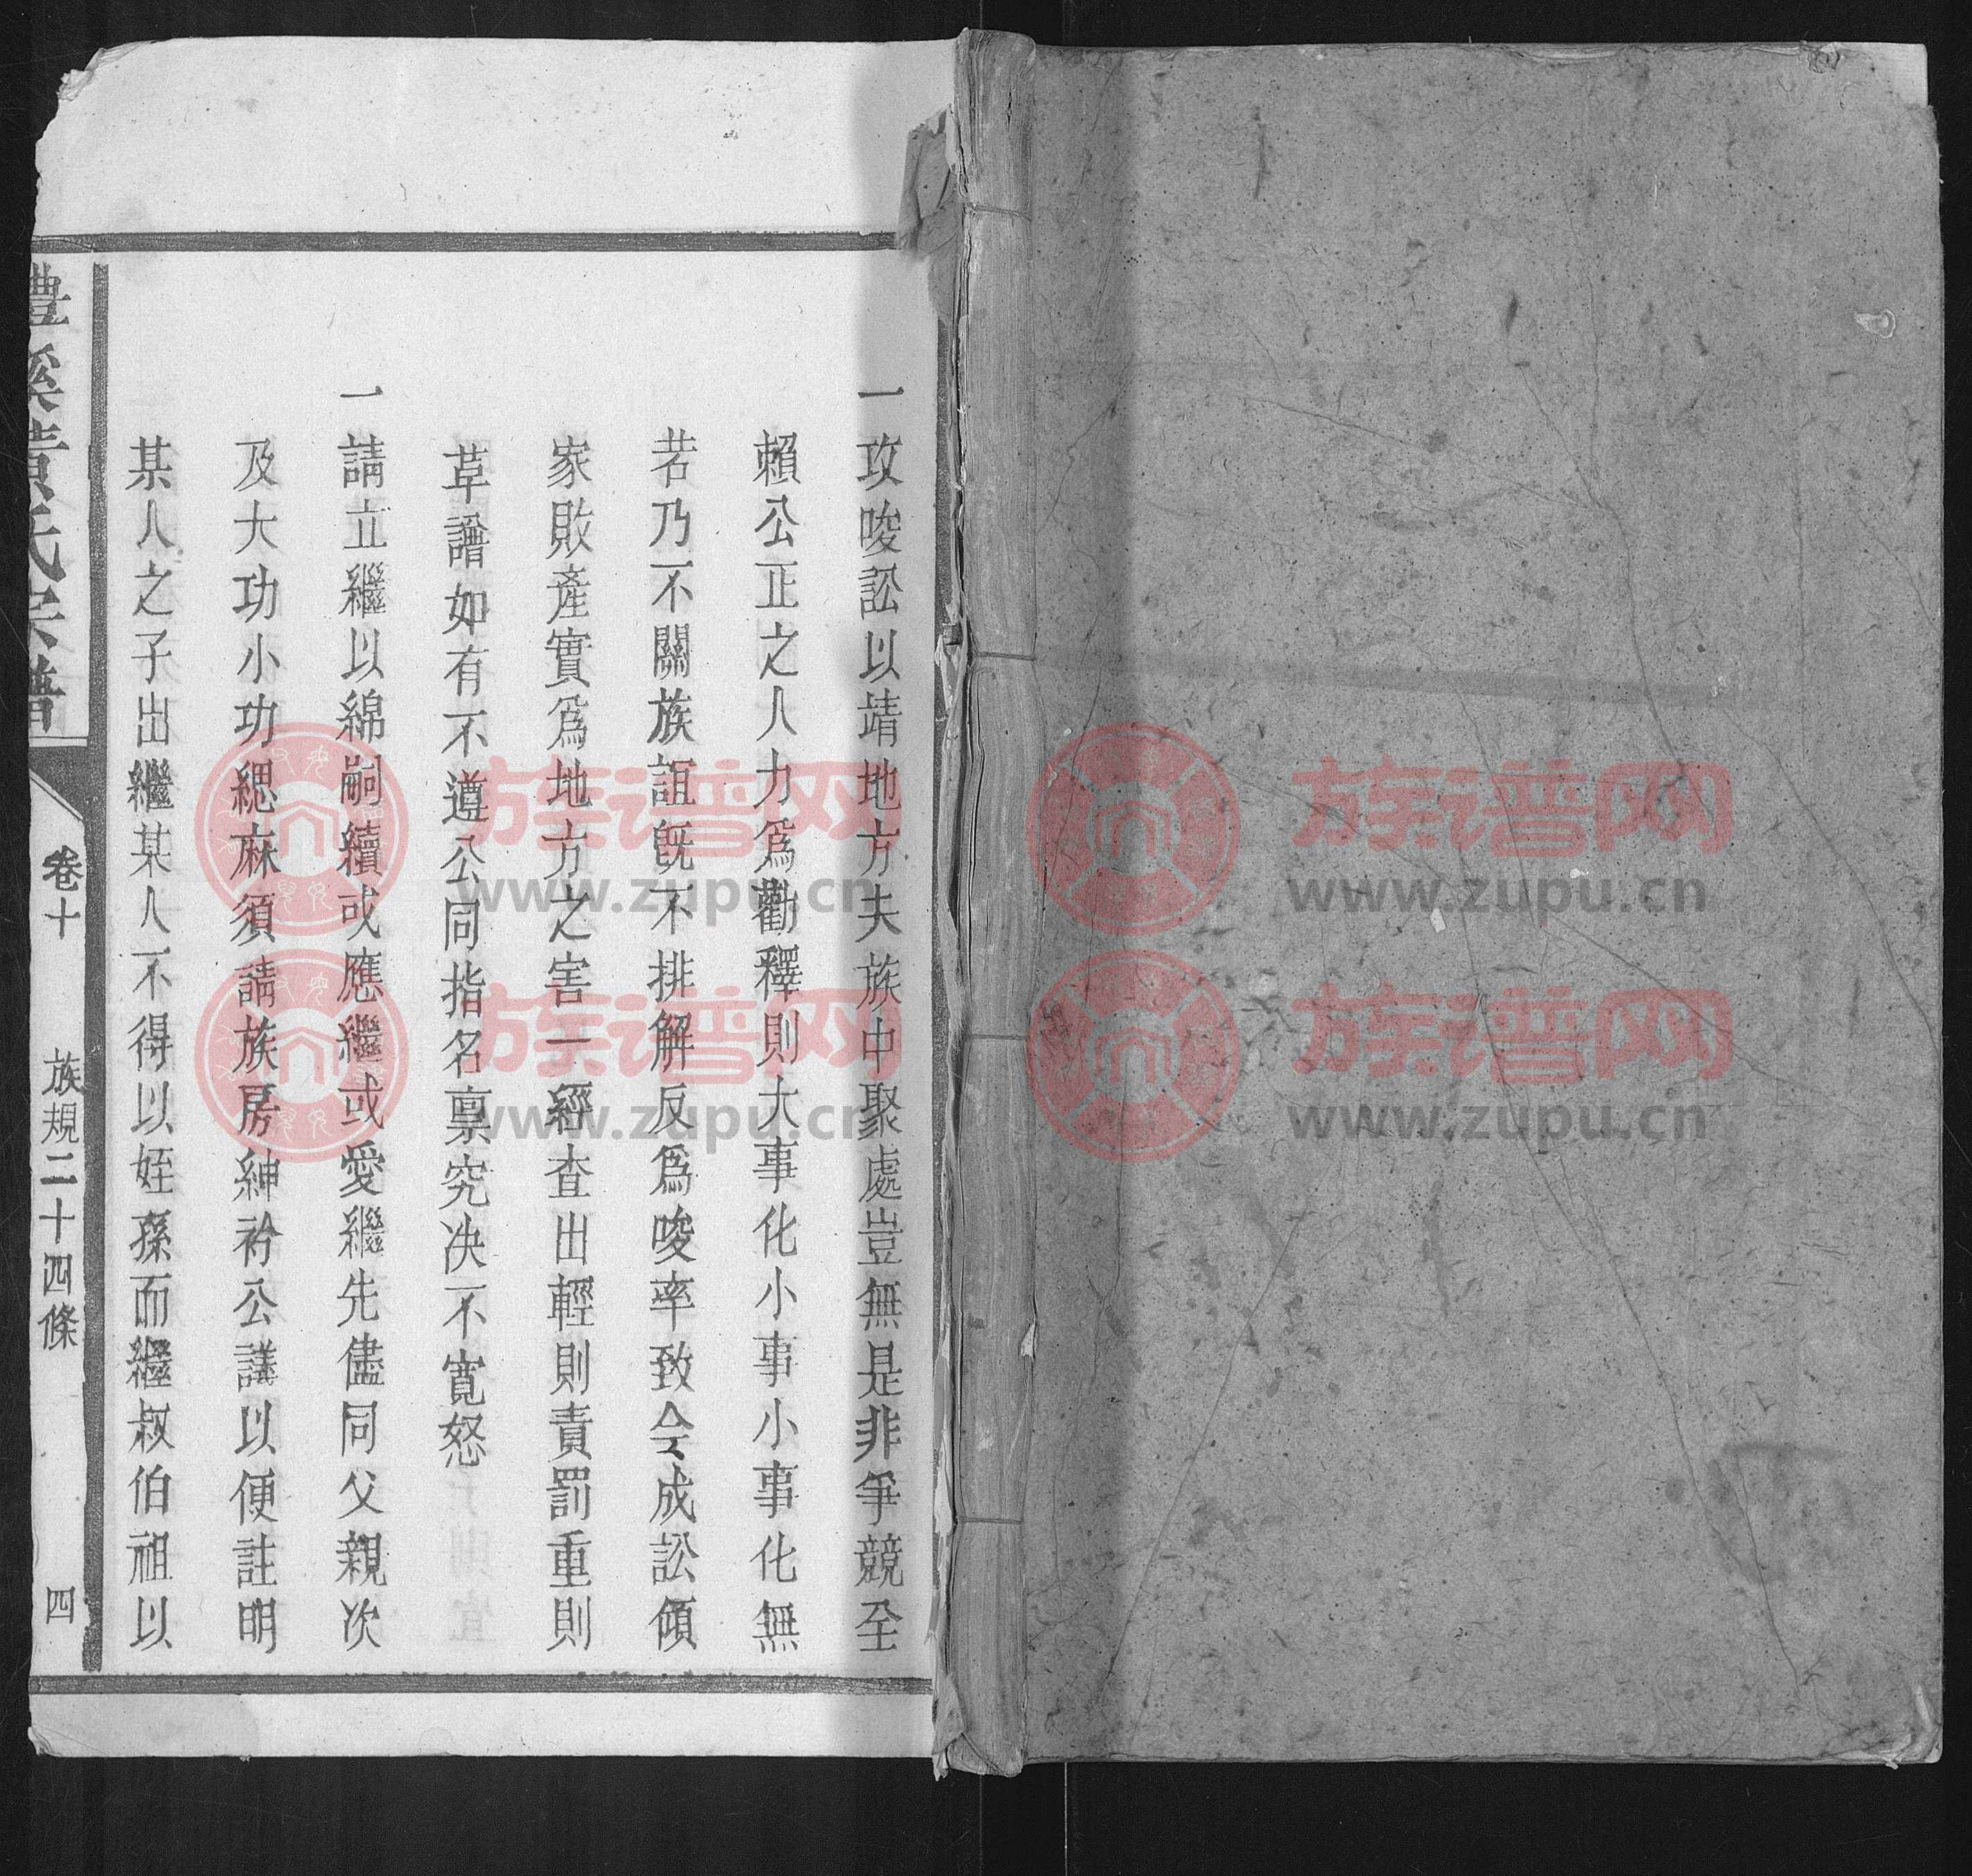 一攻唆訟以靖地方夫族中聚處豈無是非爭競全
賴公正之人力爲勸釋則大事化小事小事化無
若乃不關族誼旣不排解反爲唆率致令成訟傾
家敗產實爲地方之害一經查出輕則責罰重則
草譜如有不遵公同指名禀究决不寬怒
一請立繼以綿嗣續或應繼或愛繼先儘同父親次
及大功小功緦麻須請族房紳衿公議以便註明
某人之子出繼某人不得以姪孫而繼叔伯祖以
溪黄氏宗譜
卷十
族規二十四條
四
族谱网
www.zupu.cn
族谱网
www.zupu.cn
族谱网
www.zupu.cn
族谱网
www.zupu.cn